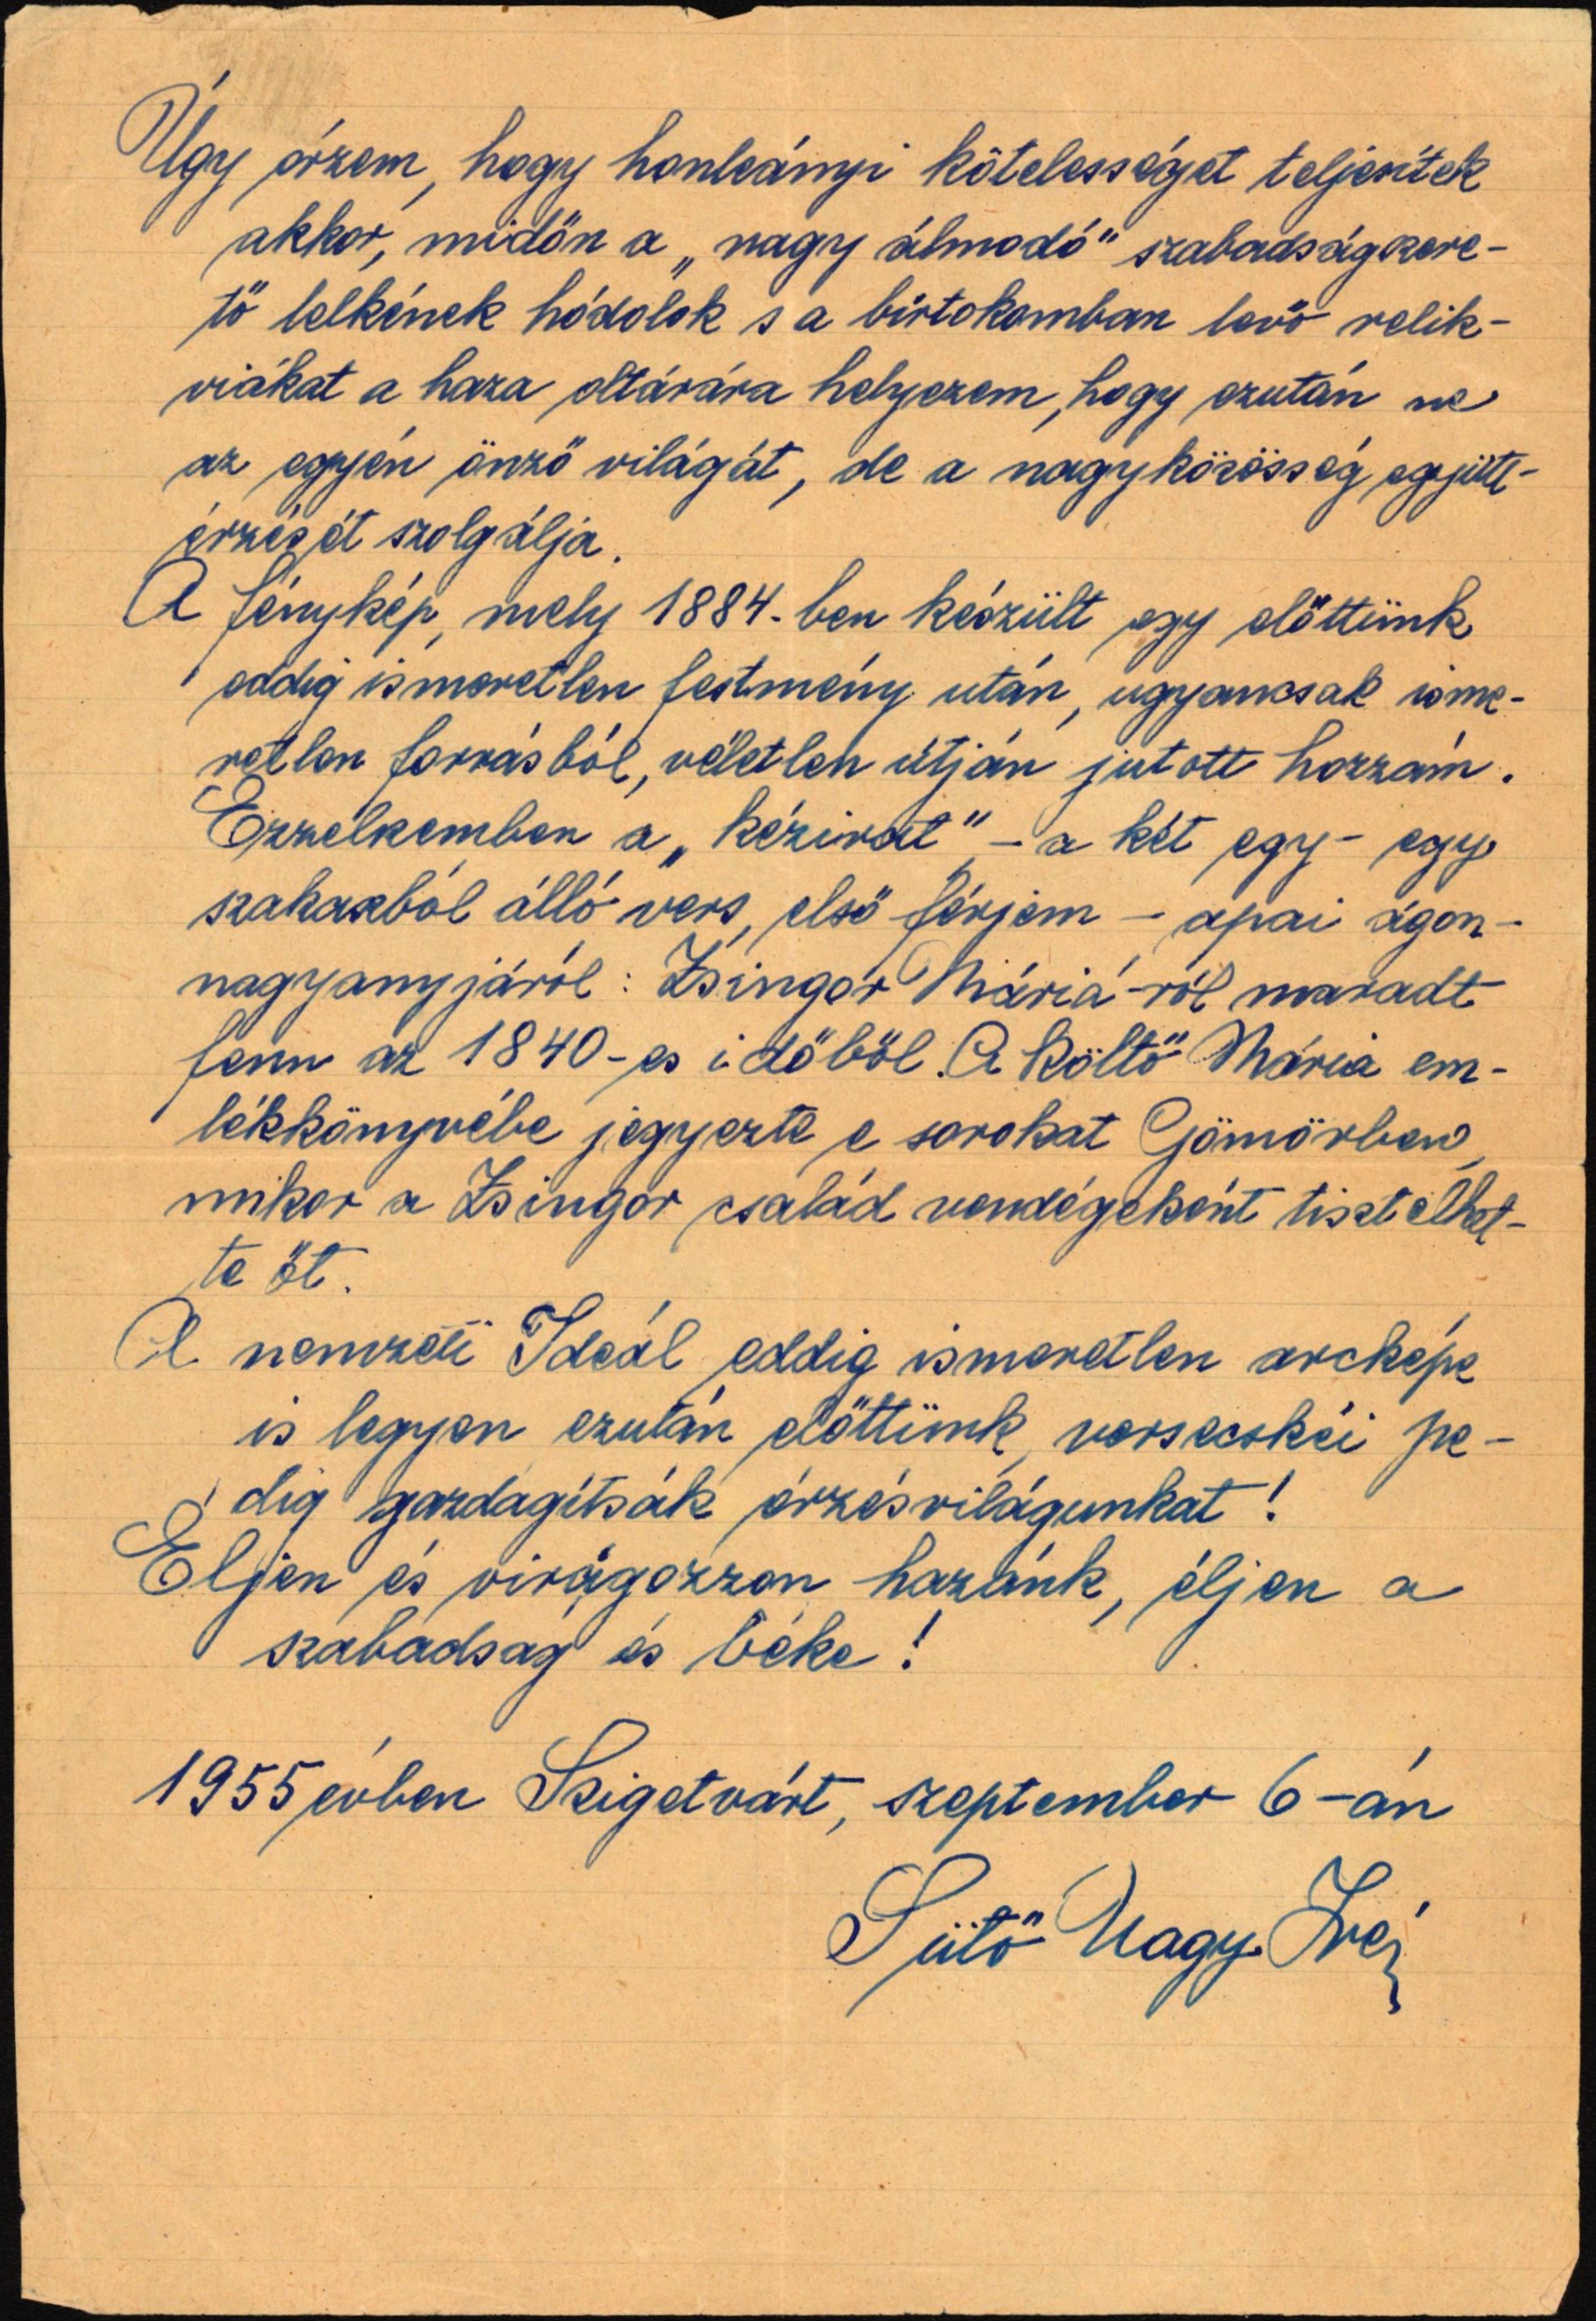 Úgy érzem, hogy honleányi kötelességet teljesítek
akkor, midőn a „nagy álmodó" szabadságszere-
tő lelkének hódolok s a birtokomban levő relik-
viákat a haza oltárára helyezem, hogy ezután ne
az egyén önző világát, de a nagyközösség együtt-
érzését szolgálja.
A fénykép, mely 1884-ben készült egy előttünk
eddig ismeretlen festmény után, ugyancsak isme-
retlen forrásból, véletlen útján jutott hozzám.
Ezzelszemben a „kézirat" – a két egy- egy
szakaszból álló vers, első férjem – apai ágon –
nagyanyjáról: Zsingor Máriá-ról maradt
fenn az 1840-es időből. A költő Mária em-
lékkönyvébe jegyezte e sorokat Gömörben,
mikor a Zsingor család vendégeként tisztelhet-
te őt.
A nemzeti Ideál eddig ismeretlen arcképe
is legyen ezután előttünk, versecskéi pe-
dig gazdagítsák érzésvilágunkat!
Éljen és virágozzon hazánk, éljen a
szabadság és béke!
1955 évben Szigetvárt, szeptember 6-án
Sütő Nagy